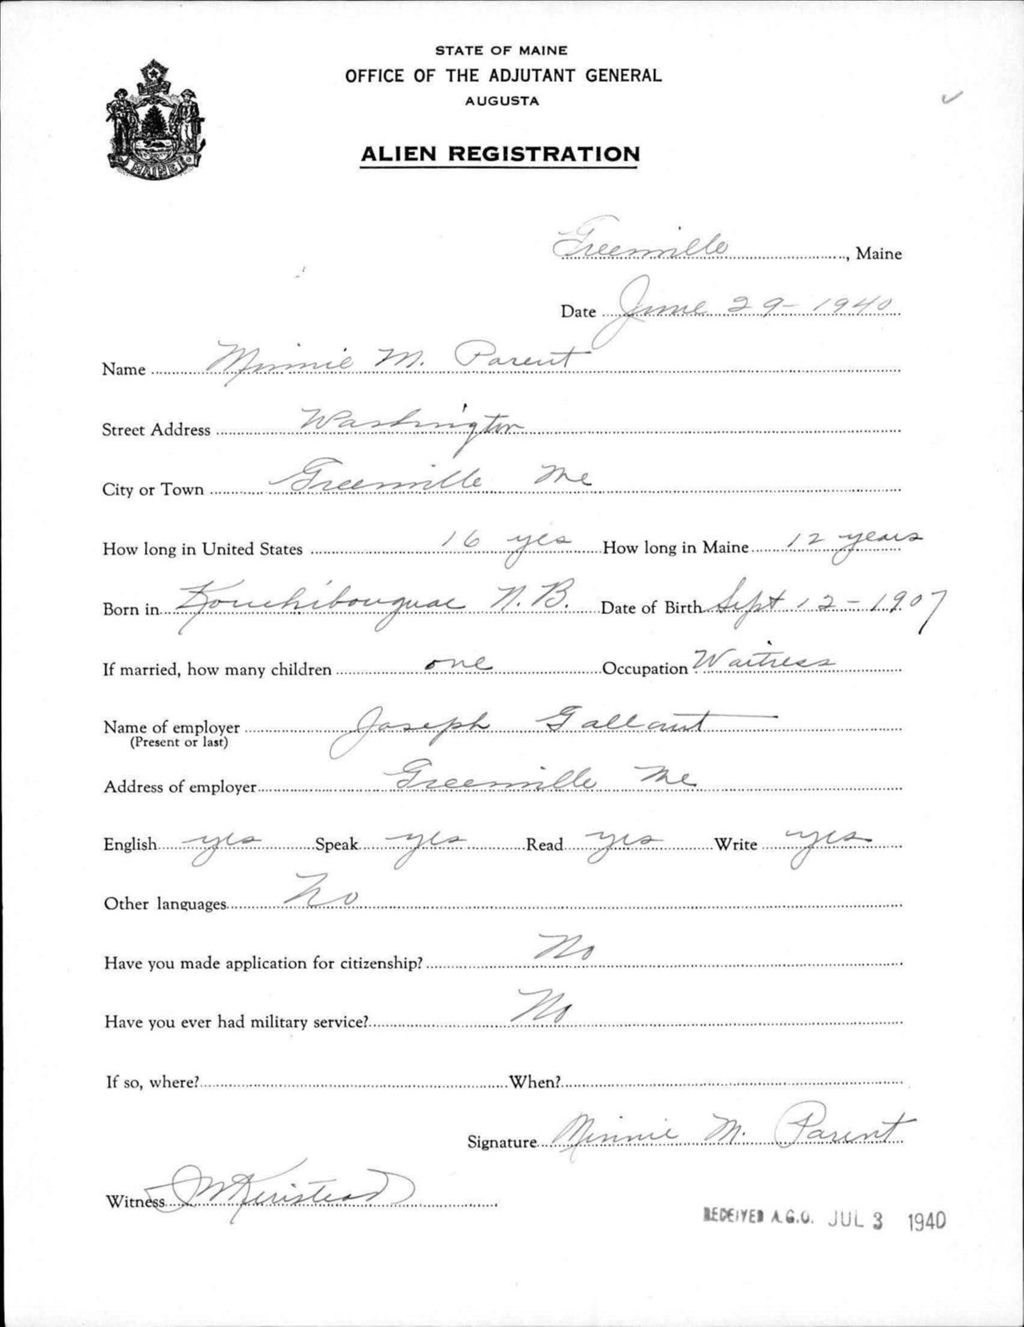 STATE OF MAINE
OFFICE OF THE ADJUTANT GENERAL
AUGUSTA
ALIEN REGISTRATION
MAINE
Greenville, Maine
Date June 29 - 1940
Name Minnie M. Parent
Street Address Washington
City or Town Greenville Me
How long in United States 16 yes How long in Maine 12 years
Born in Kouchibouguac N.B. Date of Birth Sept 12 - 1907
If married, how many children one Occupation Waitress
Name of employer Joseph Gallant
(Present or last)
Address of employer Greenville Me
English yes Speak yes Read yes Write yes
Other languages No
Have you made application for citizenship? No
Have you ever had military service? No
If so, where? When?
Signature Minnie M. Parent
Witness
RECEIVED A.G.O. JUL 3 1940